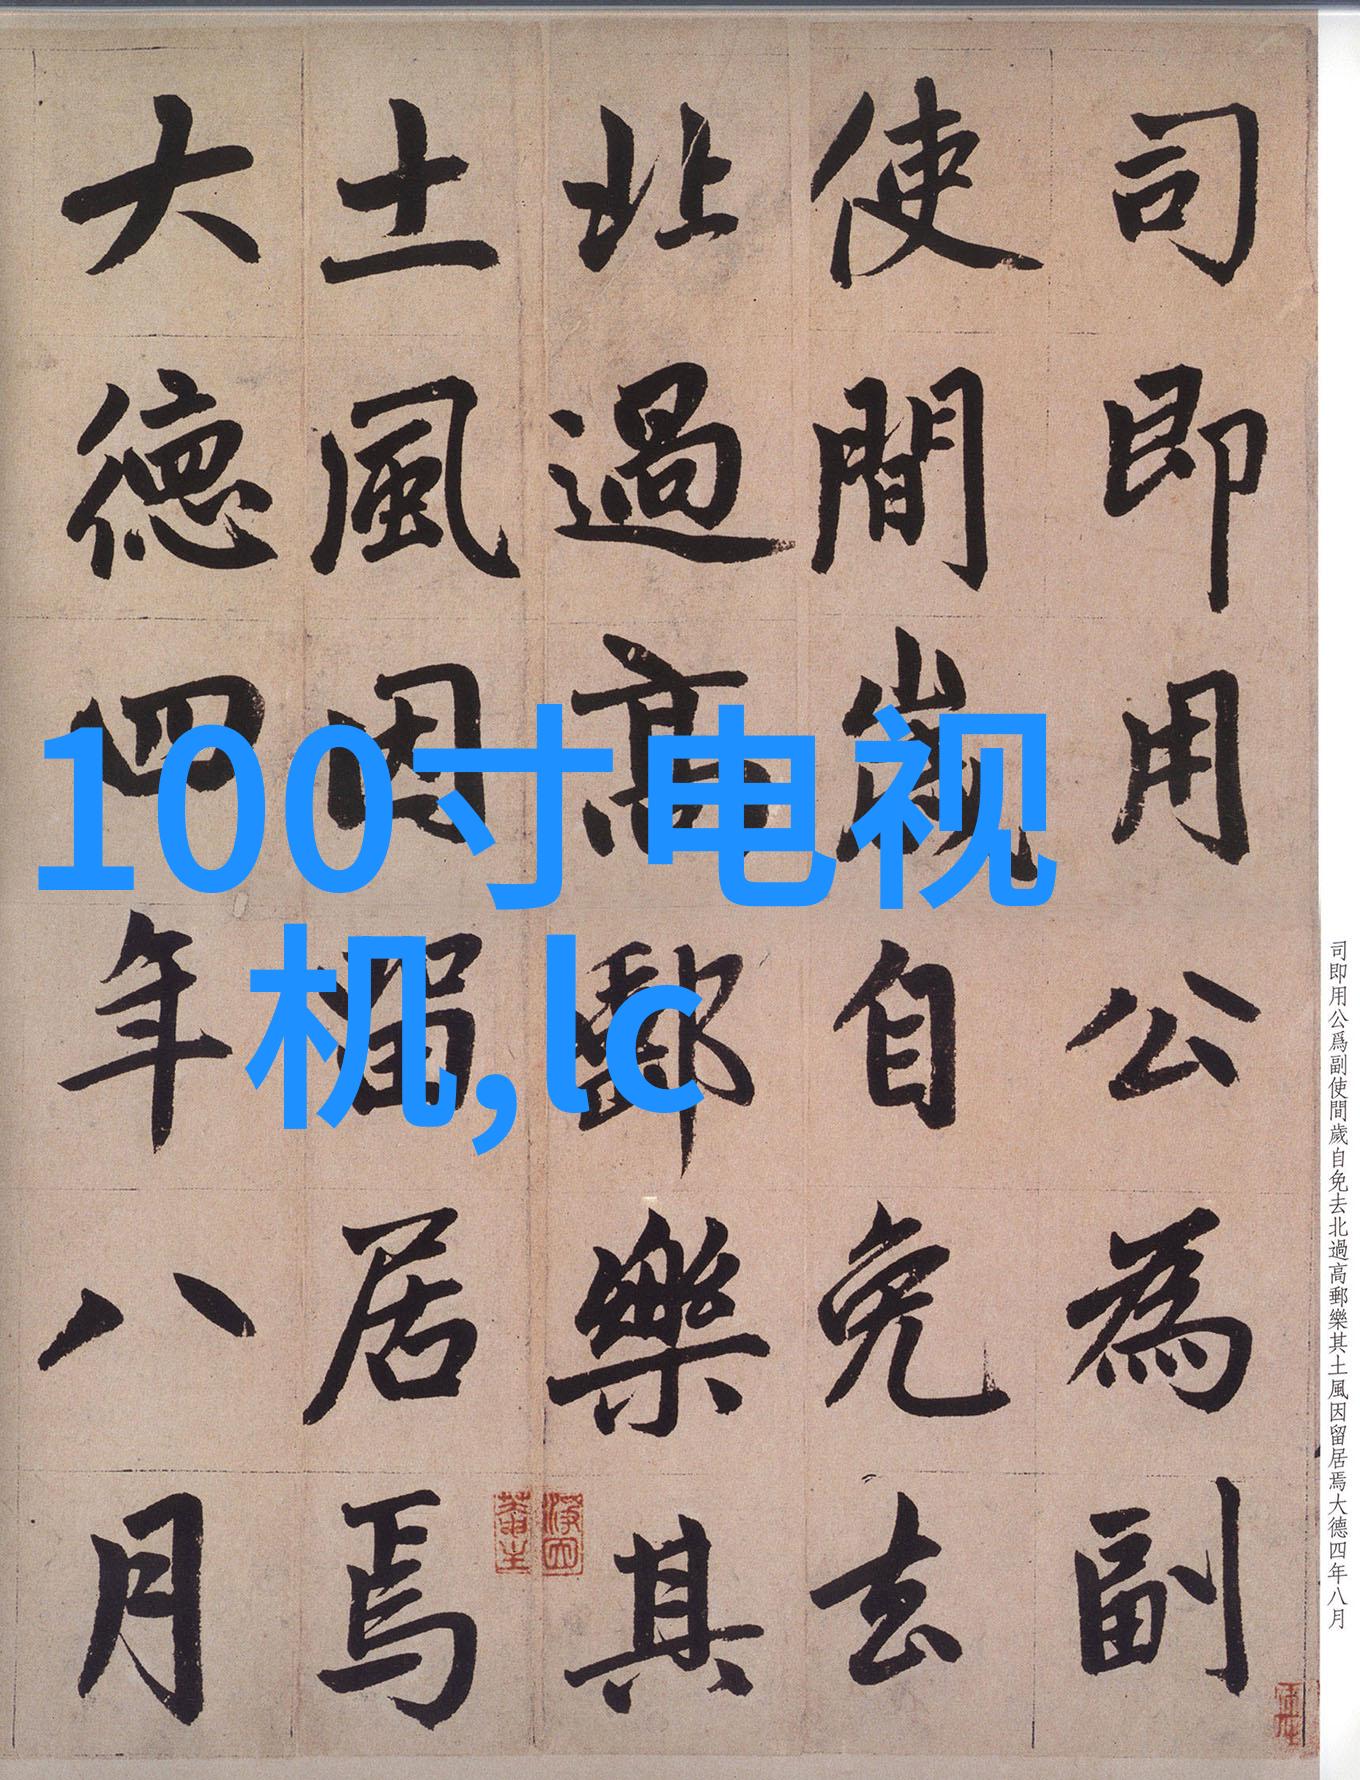 司即用公為副
使間歲自免去
北過高郵樂其
土風因留居焉
大德四年八月
100寸电视
机,lc
司即用公爲副使間歲自免去北過高郵樂其土風因留居焉大德四年八月